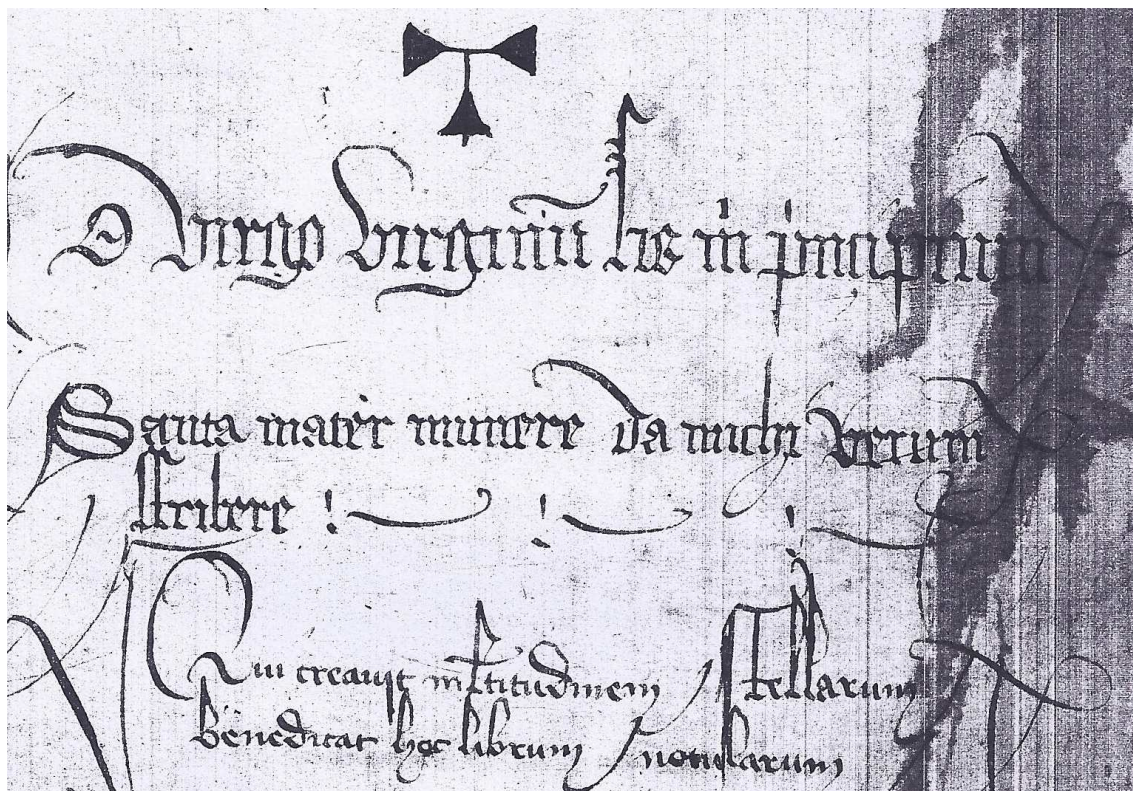 O virgo virginū sis in principium
Sancta mater munere da michi verum
scribere
Qui creavit multitudinem stellarum
benedicat hoc librum notularum